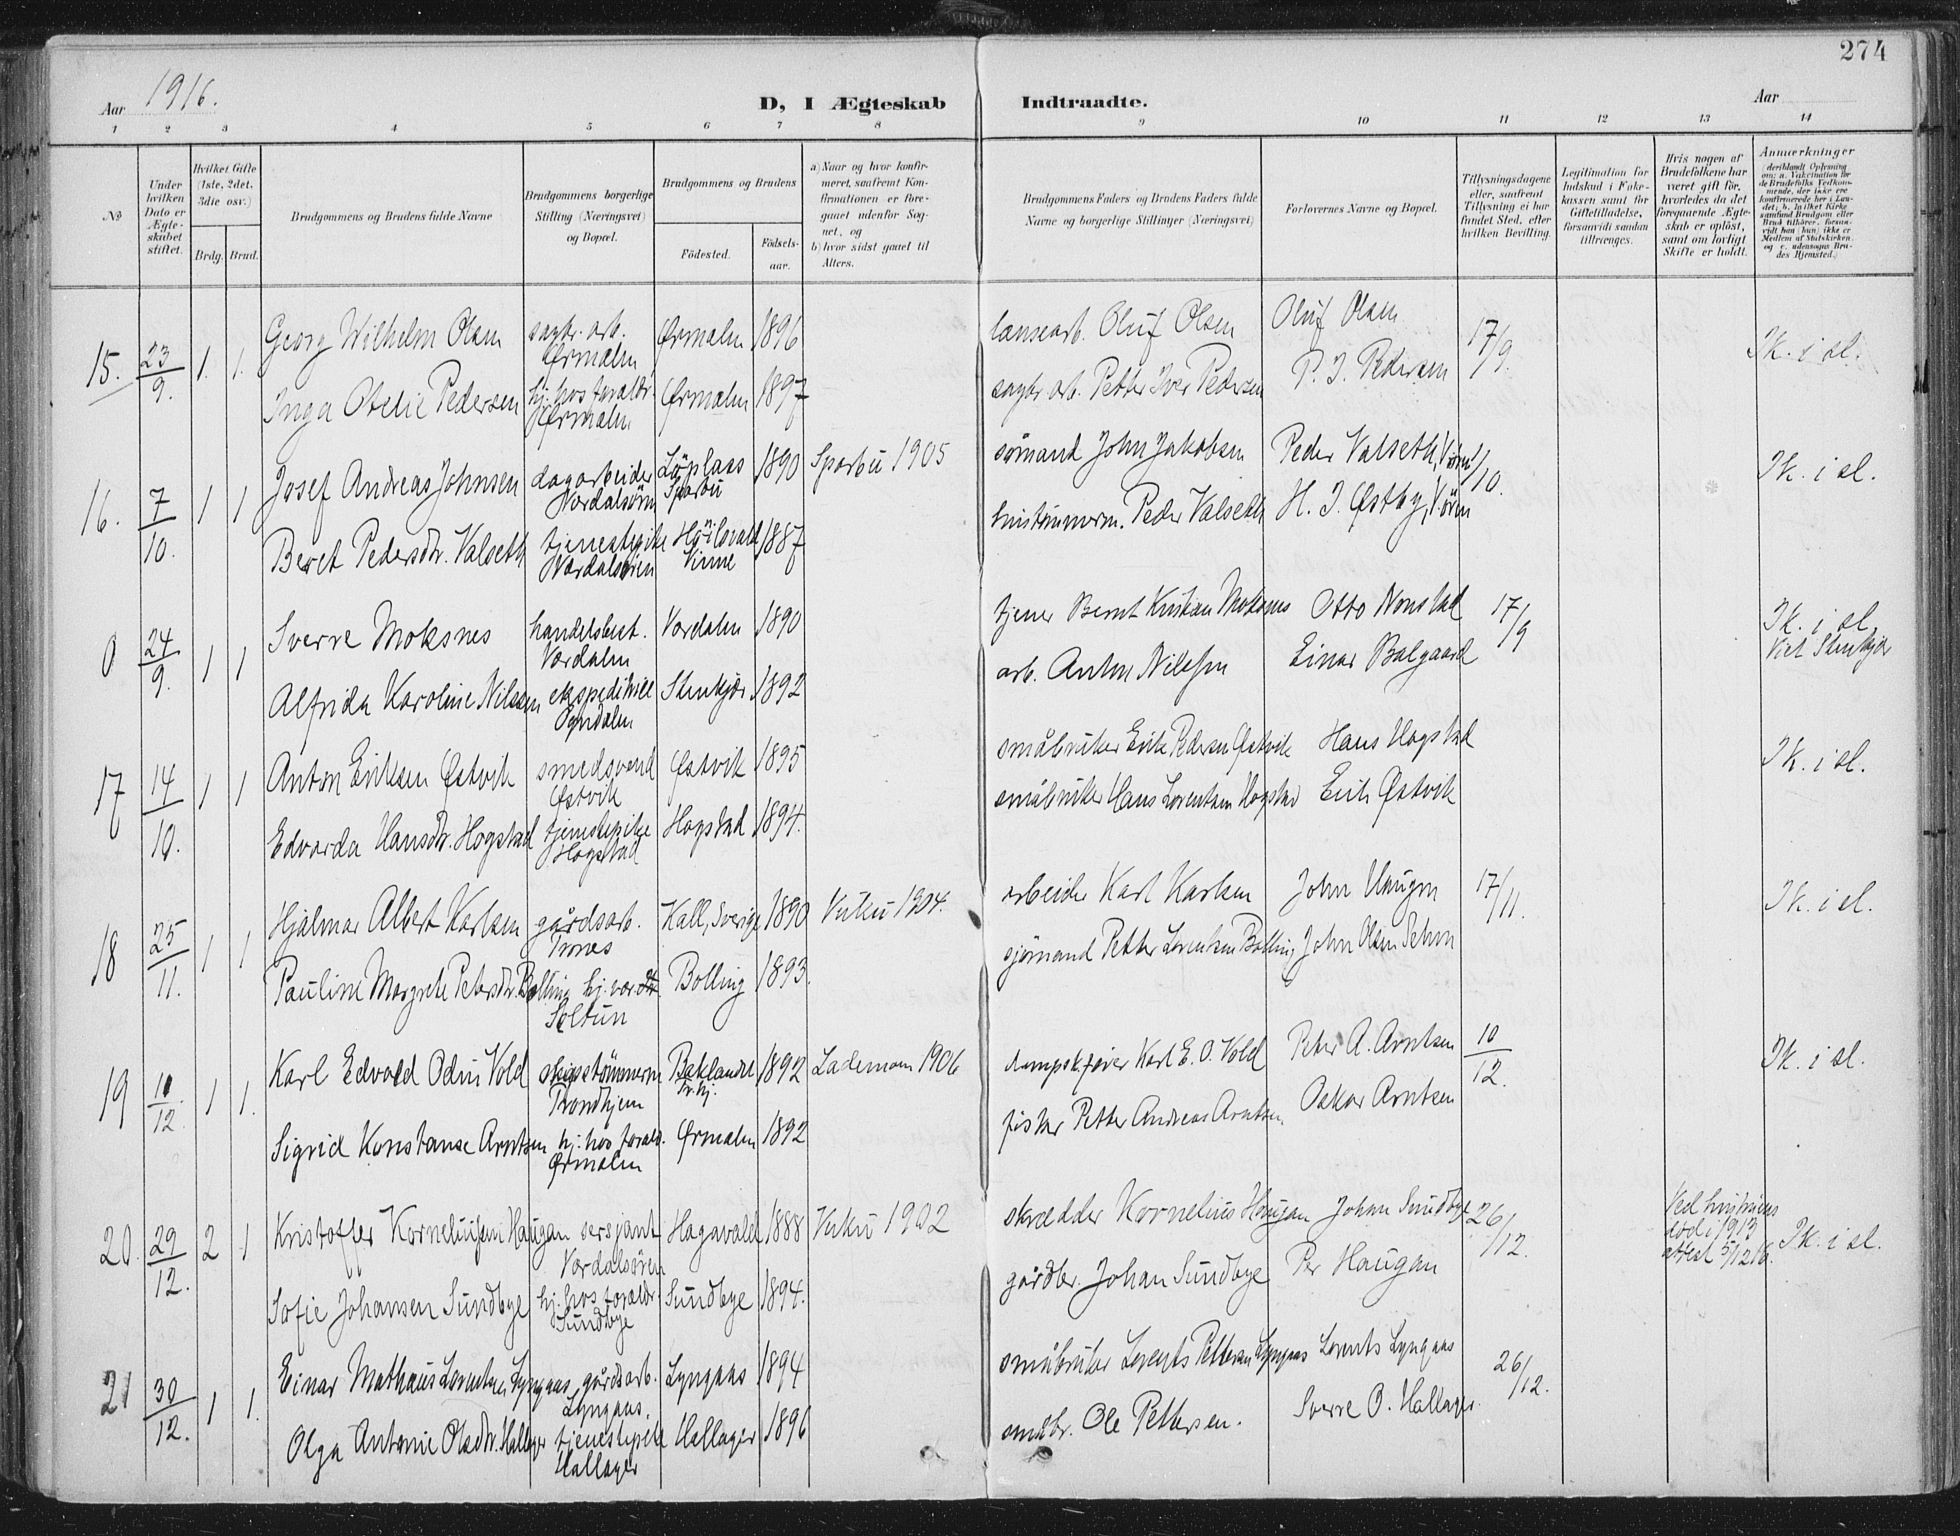 274
Aar 1916.
D, I Ægteskab Indtraadte.
Aar
1 2 3 4 5 6 7 8 9 10 11 12 13 14
No
Under hvilken Dato er Ægteskabet stiftet.
Hvilket Gifte (1ste, 2det, 3die osv.)
Brdg. Brud.
Brudgommens og Brudens fulde Navne
Brudgommens borgerlige Stilling (Næringsvei) og Bopæl.
Brudgommens og Brudens
Fødested.
Fødselsaar.
a) Naar og hvor konfirmeret, saafremt Konfirmationen er foregaaet udenfor Sognet, og
b) hvor sidst gaaet til Alters.
Brudgommens Faders og Brudens Faders fulde Navne og borgerlige Stillinger (Næringsvei)
Forlovernes Navne og Bopæl.
Tillysningsdagene eller, saafremt Tillysning ei har fundet Sted, efter hvilken Bevilling.
Legitimation for Indskud i Enkekassen samt for Giftetilladelse, forsaavidt saadan tiltrænges.
Hvis nogen af Brudefolkene har været gift før, hvorledes da det foregaaende Ægteskab er opløst, samt om lovligt Skifte er holdt.
Anmærkninger
15. 23/9. 1. 1. Georg Wilhelm Olsen sagbr. arb. Ørmelen Ørmelen 1896 lensearb. Oluf Olsen Oluf Olsen 17/9. Ik. i sl.
Inga Otelie Pedersen hj. hos foreldr. Ørmelen Ørmelen 1897 sagbr. arb. Petter Iver Pedersen P. I. Pedersen
16. 7/10. 1 1 Josef Andreas Johnsen dagarbeider Verdalsøren Löplass Sparbu 1890 Sparbu 1905 sømand John Jakobsen Peder Valseth, V.ören 1/10. Ik. i sl.
Beret Pedersdr. Valseth tjenestepike Verdalsören Vinne 1887 hustømmerm. Peder Valseth H. I. Østby, V.ören
0 24/9. 1 1 Sverre Moksnes handelsbest. Verdalen Verdalen 1890 tjener Bernt Kristian Moksnes Otto Nonstad 17/9 Ik. i sl. Viet Stenkjær
Alfrida Karoline Nilssen ekspeditrice Ogndalen Stenkjær 1892 arb. Anton Nilssen Einar Balgaard
17 14/10. 1 1 Anton Eriksen Østvik smedsvend Østvik Østvik 1895 småbruker Erik Pedersen Østvik Hans Hogstad Ik. i sl.
Edvarda Hansdr. Hogstad tjenestepike Hogstad Hogstad 1894. småbruker Hans Lorentsen Hogstad Erik Østvik
18 25/11. 1 1 Hjalmar Albert Karlsen gårdsarb. Trones Kall, Sverige 1890 Vuku 1904. arbeider Karl Karlsen John Haugen 17/11. Ik. i sl.
Pauline Margrete Petersdr. Bolling Bolling 1893. sjømand Petter Lorentsen Bolling John Olsen
19 10/12. 1 1. Karl Edvald Odin Vold skipstömmerm Trondhjem Baklandet Tr.hj. 1892 Lademoen 1906 dampskfører Karl E. O. Vold Peter A. Arntsen 10/12. Ik. i sl.
Sigrid Konstanse Arntsen hj. hos forald. Ørmelen Ørmelen 1892 fisker Petter Andreas Arntsen Oskar Arntsen
20. 29/12. 2 1 Kristoffer Korneliussen Haugan sersjant Verdalsören Hagavald 1888 Vuku 1902 skrædder Kornelius Haugan Johan Sundbye 26/12. Ved hustruens død i 1913 attest 5/12 16. Ik. i sl.
Sofie Johansen Sundbye hj. hos foreldr. Sundbye Sundbye 1894. gårdbr. Johan Sundbye Per Haugan
21 30/12. 1 1. Einar Mathæus Lorentsen Lyngaas gårdsarb. Lyngaas. Lyngaas 1894 småbruker Lorents Pettersen Lyngaas Lorents Lyngaas 26/12.
Olga Antonie Olsdr. Hallager tjenestepike Hallager Hallager 1896 småbr. Ole Pettersen. Sverre O. Hallager.